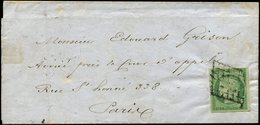 Monsieur Edouard Grison
Avoué près la Cour d'appel
Rue St honoré 338
Paris